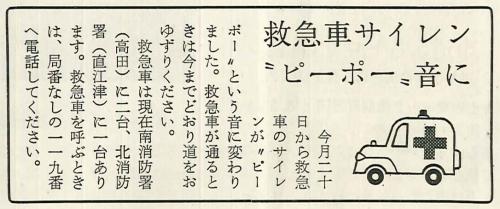 救急車サイレン
〝ピーポー〟音に
今月二十
日から救急
車のサイレ
ンが〝ピー
ポー〟という音に変わり
ました。救急車が通ると
きは今までどおり道をお
ゆずりください。
救急車は現在南消防署
（高田）に二台、北消防
署（直江津）に一台あり
ます。救急車を呼ぶとき
は、局番なしの一一九番
へ電話してください。